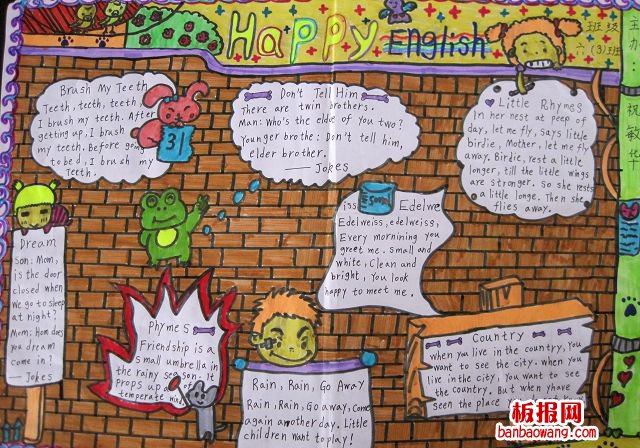 Happy English
班级
六(3)班
主办:祝敏华
Brush My Teeth
Teeth, tecth, teeth,
I brush my teeth. After
getting up, I brush
my teeth. Before going
to bed, I brush my
Teeth.
31
Don't Tell Him
There are twin brothers.
Man: Who's the elde of you two?
Younger brothe: Don't tell him,
elder brother.
——Jokes
Little Rhymes
In her nest at peep of
day, let me fly, says little
birdie, Mother, let me fly
away. Birdie, rest a little
longer, till the little wings
are stronger. So she rests
a little longe. Then she
flies away.
Dream
Son: Mom,
is the door
closed when
we go to sleep
at night?
Mom: How does
you dream
come in?
Jokes
iss Edelwe
Edelweiss, edelweiss,
Every mornining you
greet me. Small and
white, Clean and
bright, You look
happy to meet me.
Phymes
Friendship is a
small umbrella in
the rainy season. It
Props up a
temperate
Rain, Rain, Go Away
Rain, Rain, Go away, Come
again another day. Little
children want to play!
Country
when you live in the country, you
want to see the city. when you
live in the city, you want to see
the country. But when yhave
seen the place
板报网
www.banbaowang.com